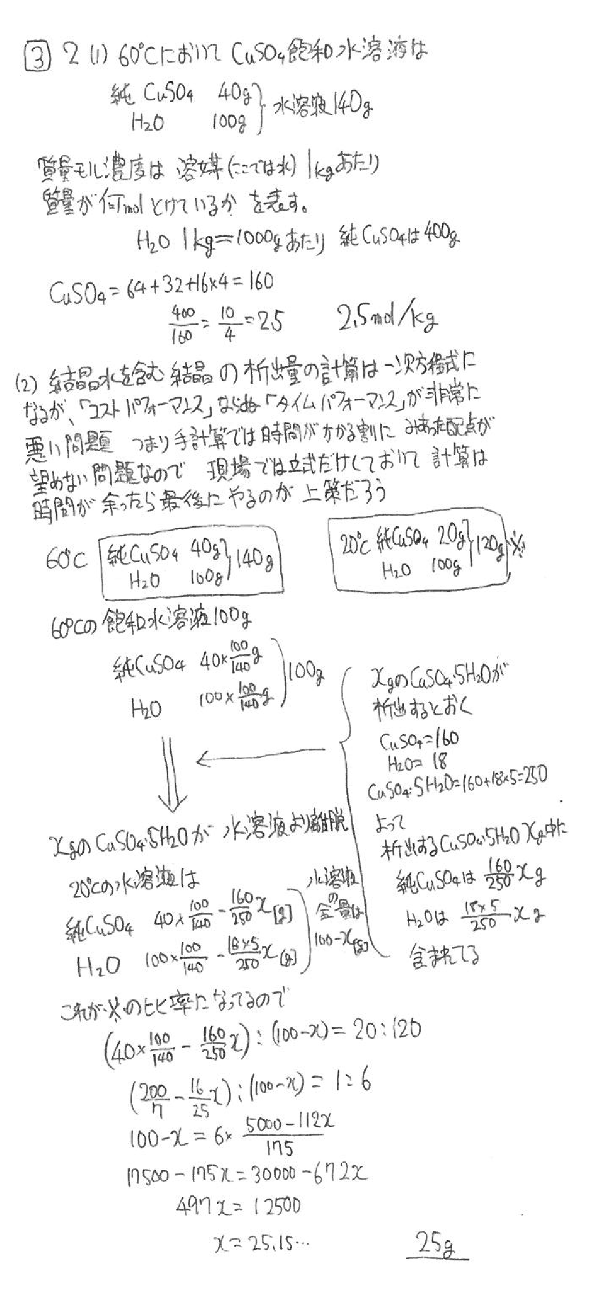 ③ 2 (1) 60℃において CuSO₄飽和水溶液は
純 CuSO₄ 40g
H₂O 100g } 水溶液140g
質量モル濃度は 溶媒(ここでは水) 1kgあたり
質量が何molとけているか を表す。
H₂O 1kg=1000gあたり 純CuSO₄は400g
CuSO₄=64+32+16×4=160
400/160=10/4=2.5 2.5mol/kg
(2) 結晶水を含む結晶の析出量の計算は一次方程式に
なるが、「コストパフォーマンス」ならぬ「タイムパフォーマンス」が非常に
悪い問題 つまり手計算では時間がかかる割に みあった配点が
望めない問題なので 現場では立式だけしておいて 計算は
時間が余ったら最後にやるのが上策だろう
60℃ 純CuSO₄ 40g
H₂O 100g } 140g
20℃ 純CuSO₄ 20g
H₂O 100g } 120g ※
60℃の飽和水溶液100g
純CuSO₄ 40×100/140g
H₂O 100×100/140g } 100g
xgのCuSO₄・5H₂Oが
析出するとおく
CuSO₄=160
H₂O=18
CuSO₄・5H₂O=160+18×5=250
よって
析出するCuSO₄・5H₂O xg中に
純CuSO₄は 160/250 xg
H₂Oは 18×5/250 xg
含まれてる
xgのCuSO₄・5H₂Oが 水溶液より離脱
20℃の水溶液は
純CuSO₄ 40×100/140-160/250x[g]
H₂O 100×100/140-18×5/250x[g]
水溶液
の
全量は
100-x[g]
これが※のヒヒ率になってるので
(40×100/140-160/250x):(100-x)=20:120
(200/7-16/25x):(100-x)=1:6
100-x=6×5000-112x/175
17500-175x=30000-672x
497x=12500
x=25.15… 25g